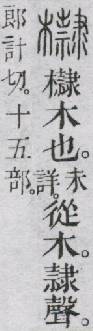 櫴木也。未詳。從木。隷聲。
郎計切。十五部。